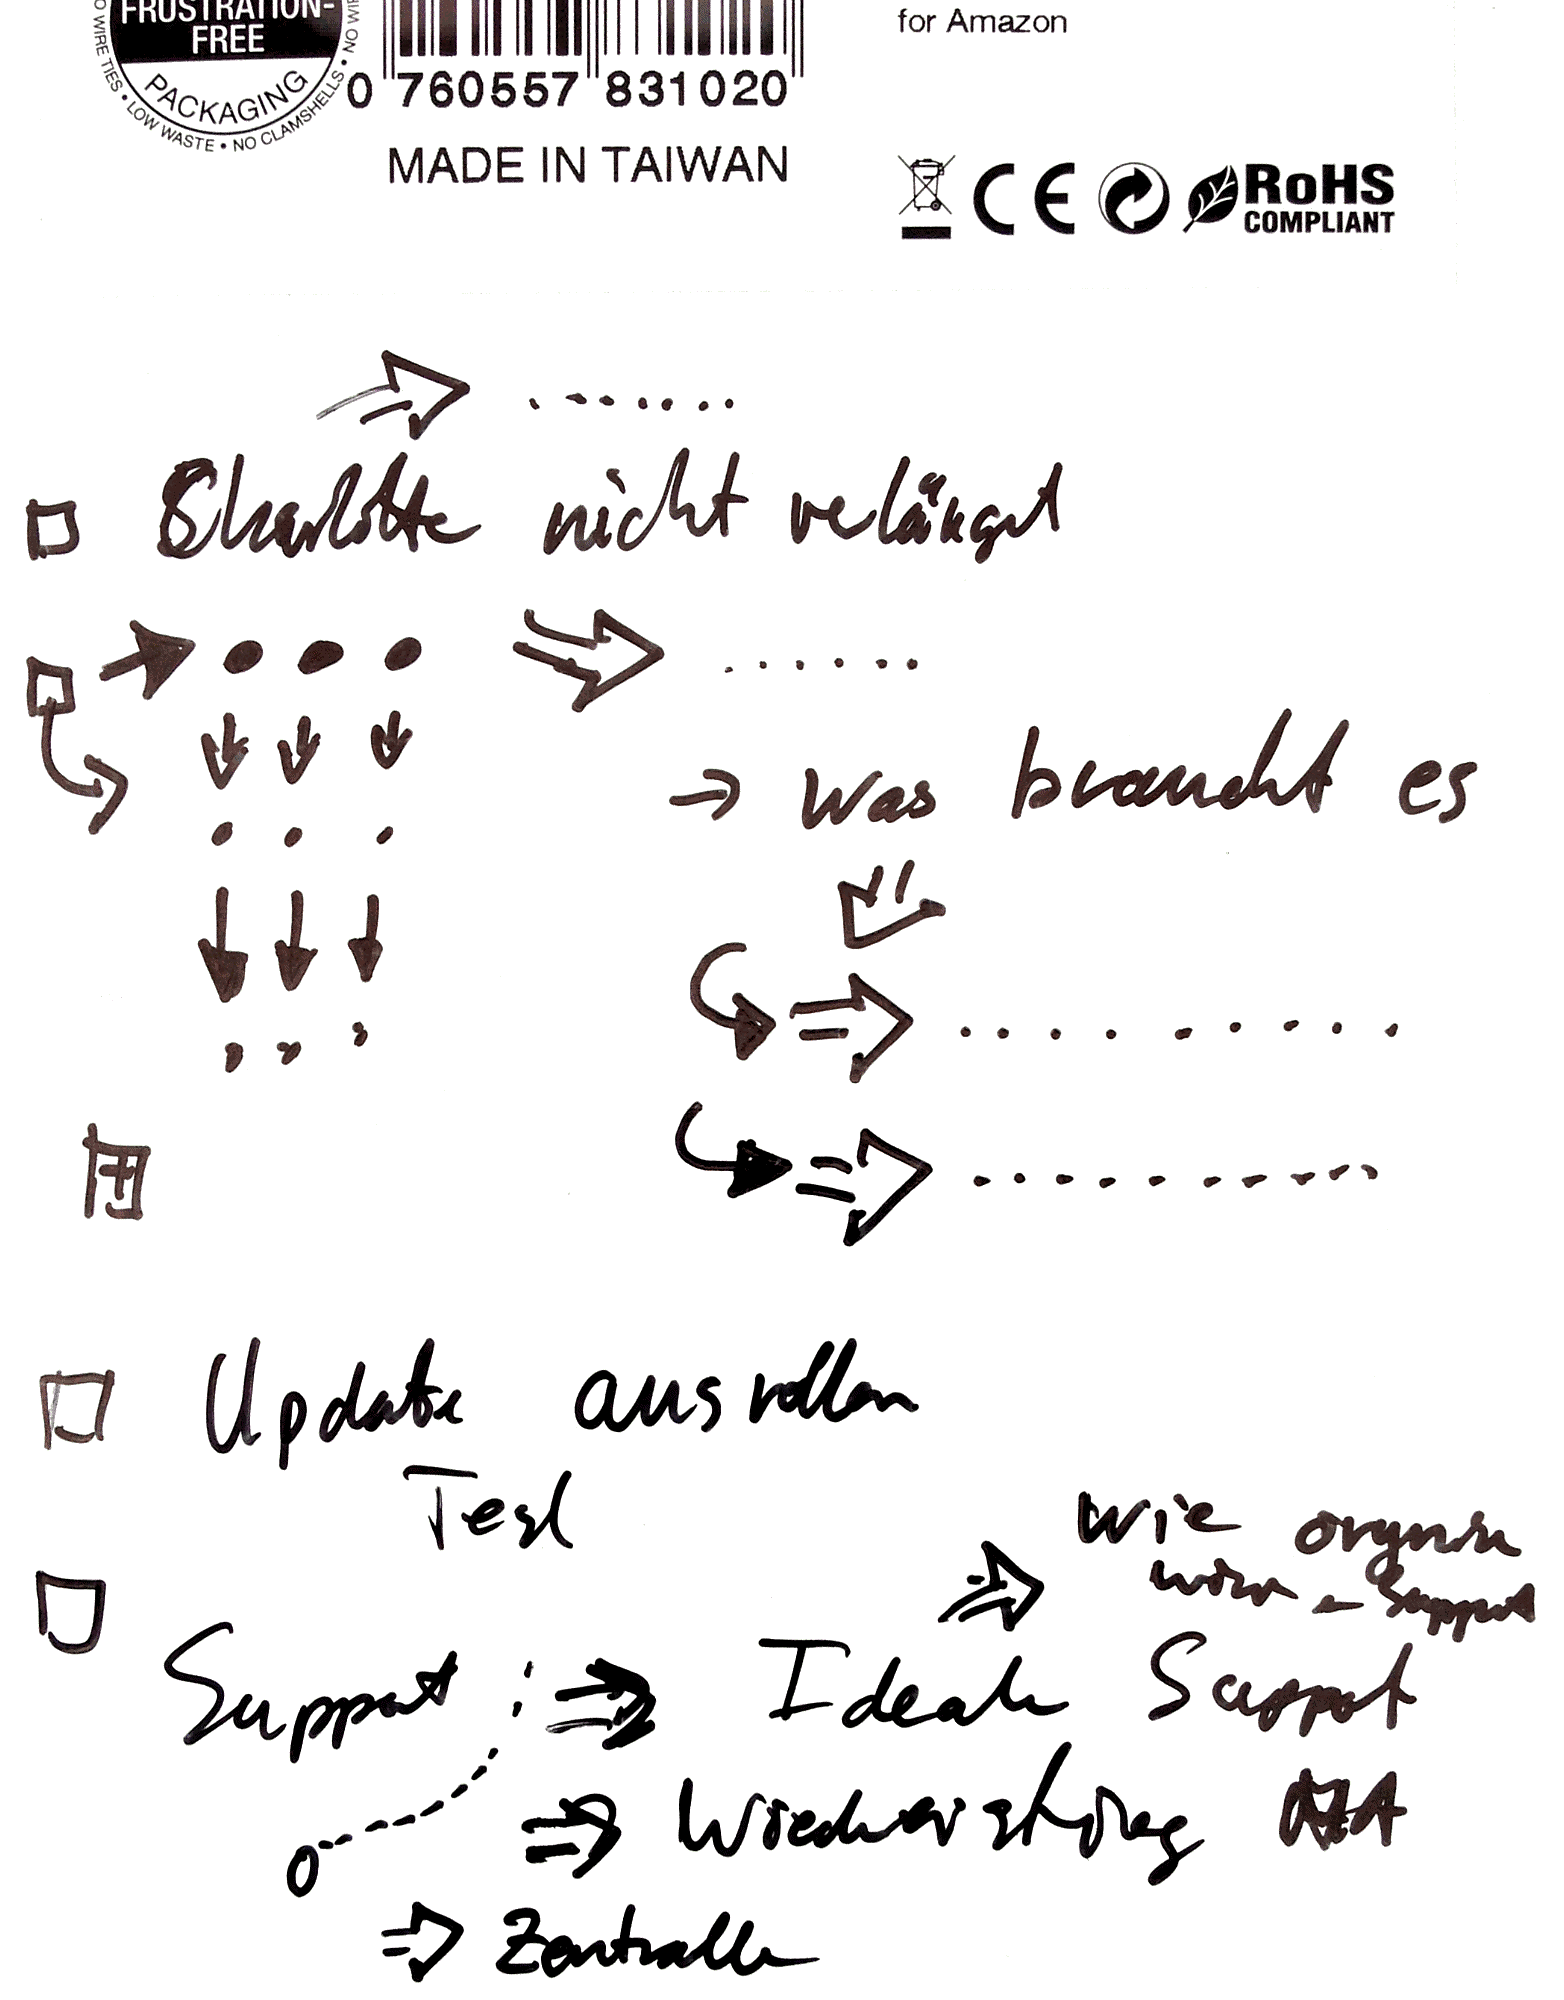 FRUSTRATION-
FREE
PACKAGING
WIRE TIES • LOW WASTE • NO CLAMSHELLS •
0 760557 831020
MADE IN TAIWAN
for Amazon
CE
RoHS
COMPLIANT
Charlotte nicht
→ Was braucht es
Update ausrollen
Test
Wie
wir Support
Support : Ideale Support
Zentralle